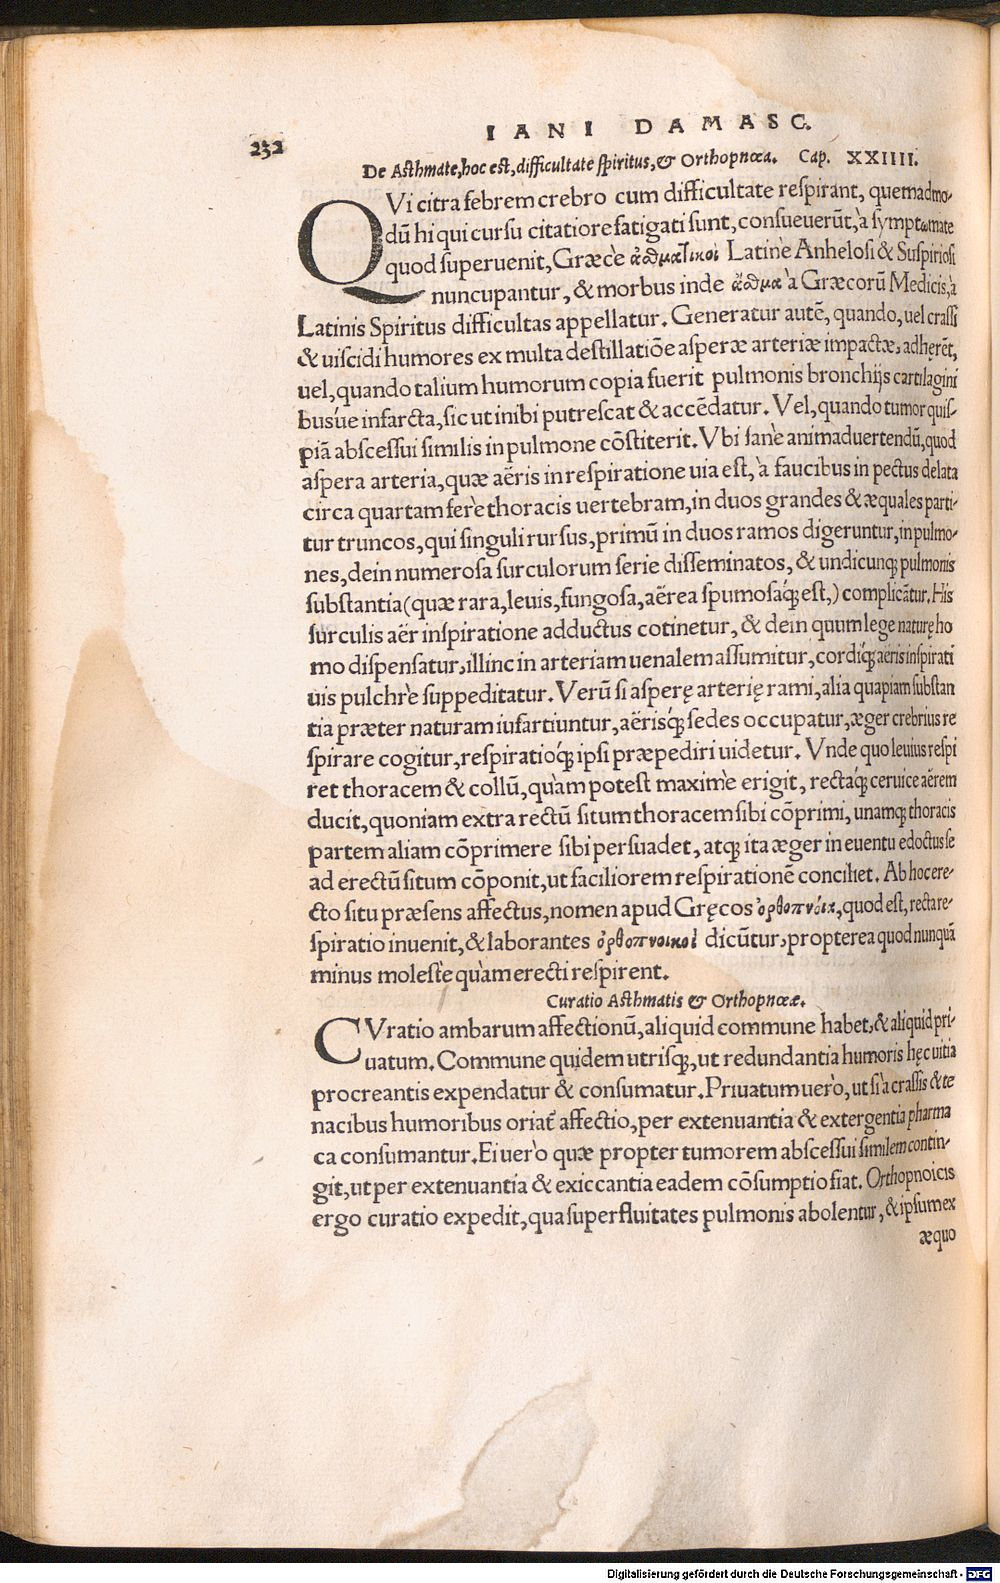 232
IANI DAMASC.
De Asthmate, hoc est, difficultate spiritus, & Orthopnœa. Cap. XXIIII.
QVi citra febrem crebro cum difficultate respirant, quemadmo-
dũ hi qui cursu citatiore fatigati sunt, consueuerũt, à symptωmate
quod superuenit, Græcè ἀσθματικοὶ Latinè Anhelosi & Suspiriosi
nuncupantur, & morbus inde ἄσθμα à Græcorũ Medicis, à
Latinis Spiritus difficultas appellatur. Generatur autẽ, quando, uel crassi
& uiscidi humores ex multa destillatiõe asperæ arteriæ impactæ, adhęrẽt,
uel, quando talium humorum copia fuerit pulmonis bronchijs cartilagini
busúe infarcta, sic ut inibi putrescat & accẽdatur. Vel, quando tumor quis-
piã abscessui similis in pulmone cõstiterit. Vbi sanè animaduertendũ, quod
aspera arteria, quæ aëris in respiratione uia est, à faucibus in pectus delata
circa quartam ferè thoracis uertebram, in duos grandes & æquales parti-
tur truncos, qui singuli rursus, primũ in duos ramos digeruntur, in pulmo-
nes, dein numerosa surculorum serie disseminatos, & undicunq; pulmonis
substantia (quæ rara, leuis, fungosa, aërea spumosáq; est,) complicãtur. His
surculis aër inspiratione adductus cotinetur, & dein quum lege naturę ho
mo dispensatur, illinc in arteriam uenalem assumitur, cordíq; aëris inspirati
uis pulchrè suppeditatur. Verũ si asperę arterię rami, alia quapiam substan
tia præter naturam iufartiuntur, aërisq́; sedes occupatur, æger crebrius re
spirare cogitur, respiratioq́; ipsi præpediri uidetur. Vnde quo leuius respi
ret thoracem & collũ, quàm potest maximè erigit, rectáq; ceruice aërem
ducit, quoniam extra rectũ situm thoracem sibi cõprimi, unamq; thoracis
partem aliam cõprimere sibi persuadet, atq; ita æger in euentu edoctus se
ad erectũ situm cõponit, ut faciliorem respirationẽ conciliet. Ab hoc ere-
cto situ præsens affectus, nomen apud Gręcos ὀρθοπνόια, quod est, recta re-
spiratio inuenit, & laborantes ὀρθοπνοικοὶ dicũtur, propterea quod nunquã
minus molestè quàm erecti respirent.
Curatio Asthmatis & Orthopnœæ.
CVratio ambarum affectionũ, aliquid commune habet, & aliquid pri-
uatum. Commune quidem utrisq;, ut redundantia humoris hęc uitia
procreantis expendatur & consumatur. Priuatum uerò, ut si à crassis & te
nacibus humoribus oriat̃ affectio, per extenuantia & extergentia pharma
ca consumantur. Ei uerò quæ propter tumorem abscessui similem contin-
git, ut per extenuantia & exiccantia eadem cõsumptio fiat. Orthopnoicis
ergo curatio expedit, qua superfluitates pulmonis abolentur, & ipsum ex
æquo
Digitalisierung gefördert durch die Deutsche Forschungsgemeinschaft - DFG